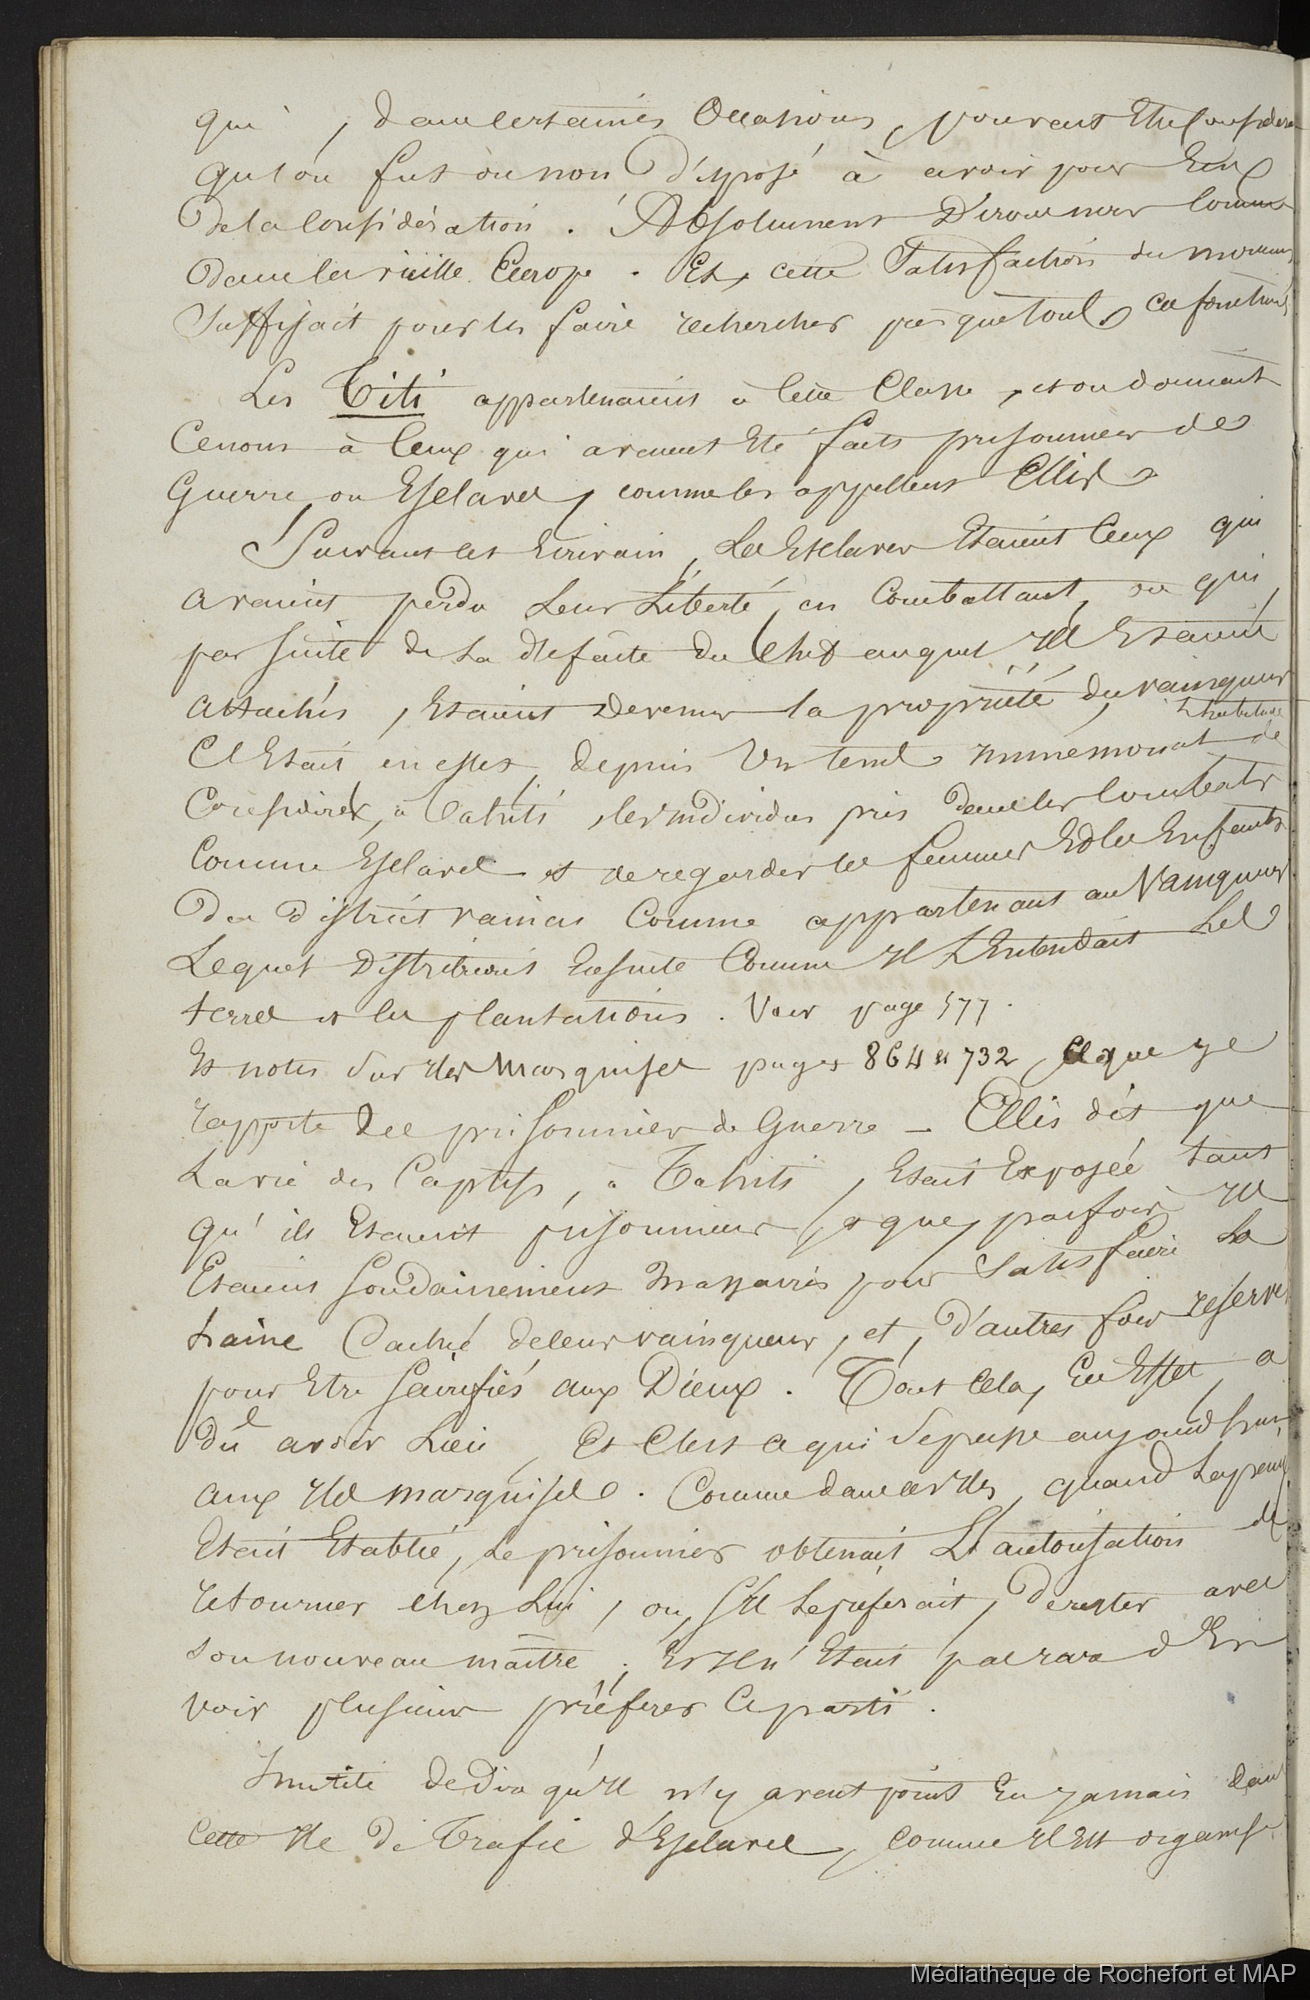 qui, dans certaines occasions, pouvait être considéré
qu'on fut ou non disposé à avoir pour eux
de la considération. Absolument
dans la vieille Europe. Et, cette satisfaction du moment
suffisait pour les faire rechercher presque tous ces fonctions
Les Titi appartenaient à cette classe, et on donnait
ce nom à ceux qui avaient été faits prisonniers de
guerre, ou Esclaves, comme les appellent Ellis
Suivant cet écrivain, les Esclaves étaient ceux qui
avaient perdu leur liberté, en combattant, ou qui,
par suite de la défaite du chef auquel ils étaient
attachés, étaient devenus la propriété du vainqueur
l'habitude
C'était en effet, depuis un temps immémorial de
considérer, à Tahiti, les individus pris dans les combats
comme Esclaves et de regarder les femmes et les enfants
du district vaincu comme appartenant au vainqueur
lequel distribuait ensuite comme il l'entendait les
terres et les plantations. Voir page 577.
Et notes sur Iles Marquises pages 864 et 732, ce que je
rapporte des prisonniers de guerre - Ellis dit que
la vie des captifs, à Tahiti, était exposée tant
qu'ils étaient prisonniers, et que, parfois ils
étaient soudainement massacrés pour satisfaire la
haine cachée de leur vainqueur, et, d'autres fois réservés
pour être sacrifiés aux Dieux. Tout cela, en effet, a
dû avoir lieu, et c'est ce qui se passe aujourd'hui,
aux Iles marquises. Comme dans ces Iles, quand la paix
était établie, le prisonnier obtenait l'autorisation de
retourner chez lui, ou, s'il le préférait, de rester avec
son nouveau maître; et il n'était pas rare d'en
voir plusieurs préférer ce parti.
Inutile de dire qu'il n'y avait point eu jamais dans
cette Ile de trafic d'Esclaves, comme il est organisé
Médiathèque de Rochefort et MAP